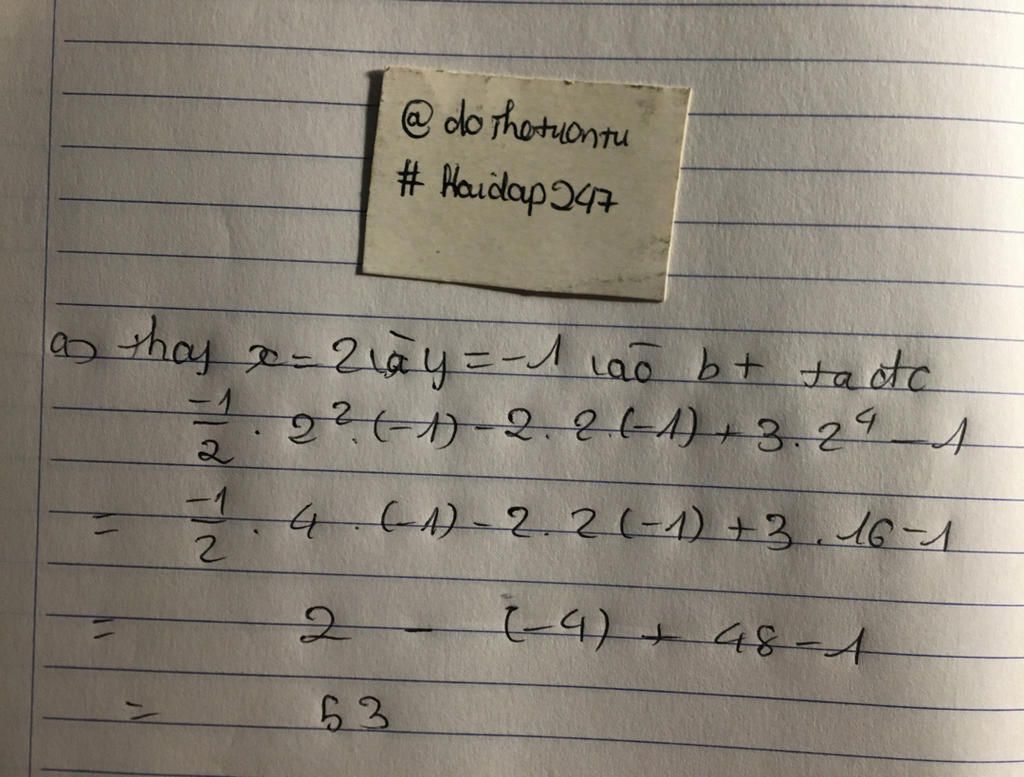 @ dothetuantu
# Hoidap247
a) thay x = 2 và y = -1 vào bt ta đtc
-1/2 . 2² . (-1) - 2 . 2 . (-1) + 3 . 2⁴ - 1
= -1/2 . 4 . (-1) - 2 . 2 (-1) + 3 . 16 - 1
= 2 - (-4) + 48 - 1
= 53